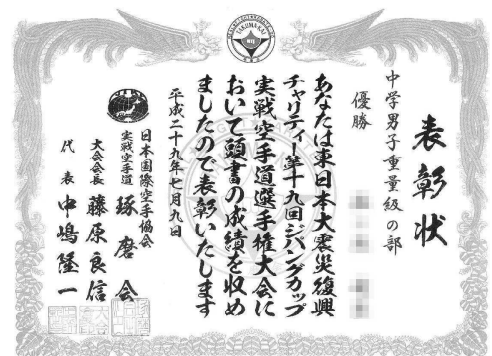 表彰状
中学男子重量級の部
優勝
あなたは東日本大震災復興
チャリティ第十九回ジパングカップ
実戦空手道選手権大会に
おいて頭書の成績を収め
ましたので表彰いたします
平成二十九年七月九日
日本国際空手協会
実戦空手道 琢磨会
大会会長 藤原良信
代表 中嶋隆一